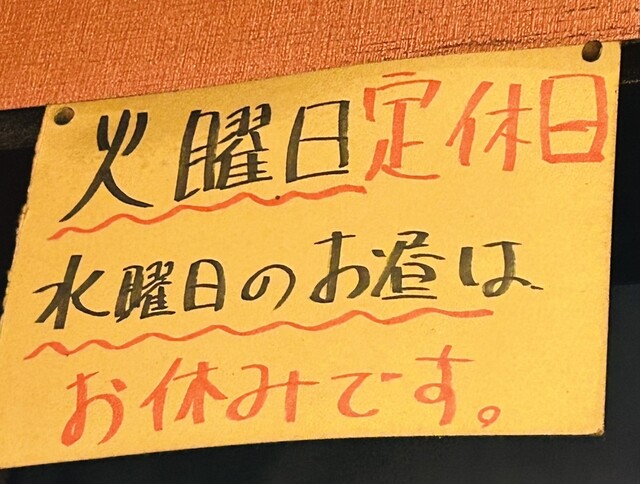 火曜日定休日
水曜日のお昼は
お休みです。